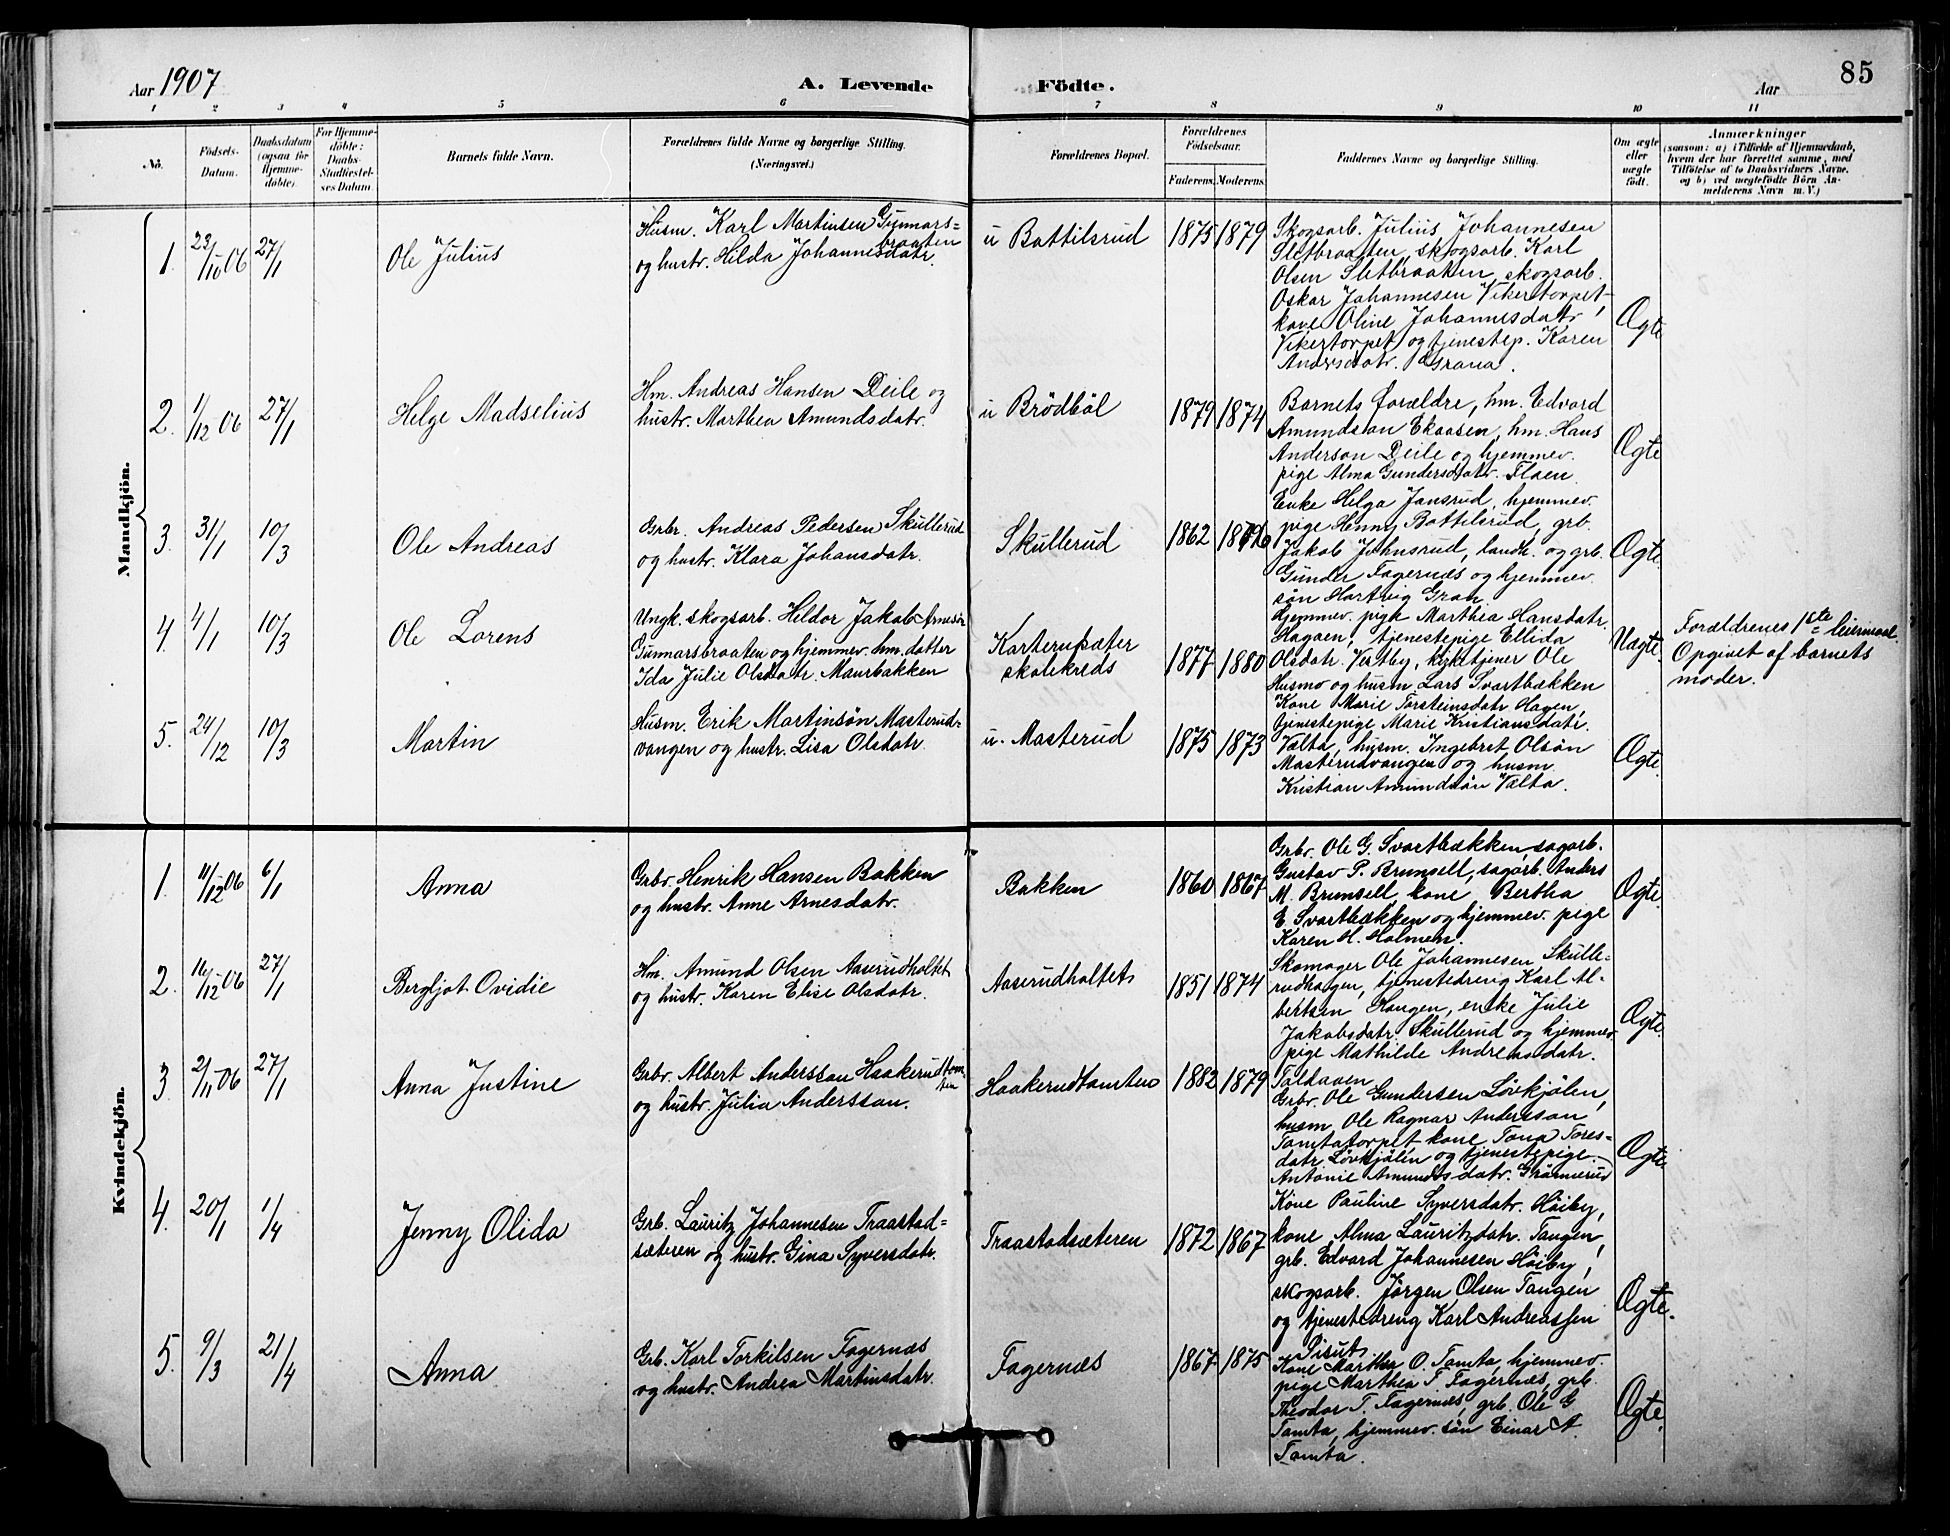 Aar 1907
A. Levende Födte.
Aar
85
1 2 3 4 5 6 7 8 9 10 11
No.
Födsels-
Datum.
Daabsdatum
(ogsaa for
Hjemme-
döbte).
For Hjemme-
döbte:
Daabs-
Stadfæstel-
ses Datum.
Barnets fulde Navn.
Forældrenes fulde Navne og borgerlige Stilling.
(Næringsvei.)
Forældrenes Bopæl.
Forældrenes
Födselsaar.
Faderens. Moderens.
Faddernes Navne og borgerlige Stilling.
Om ægte
eller
uægte
födt.
Anmærkninger
(saasom: a) i Tilfælde af Hjemmedaab,
hvem der har forrettet samme, med
Tilföielse af to Daabsvidners Navne.
og b) ved uægtefödte Börn An-
melderens Navn m. V.)
Mandkjön.
1. 23/10 06 27/1
Ole Julius
Husm. Karl Martinsen Gunnars-
braaten
og hustr. Hilda Johannesdatr.
u Battilsrud
1875 1879
Skogsarb. Julius Johannesen
Sletbraaten, skogsarb. Karl
Olsen Sletbraaten, skogsarb.
Oskar Johannesen Vikertorpet,
kone Oline Johannesdatr
Vikertorpet og tjenestep. Karen
Andersdatr. Grana.
Ægte
2. 1/12 06 27/1
Helge Madselius
Hm. Andreas Hansen Deile og
hustr. Marthea Amundsdatr.
u Brödböl
1879 1874
Barnets forældre, hm. Edvard
Amundsson Ekaasen, hm. Hans
Anderson Deile og hjemmev.
pige Alma Gundersdatr. Flaen.
Ægte
3. 31/1 10/3
Ole Andreas
Grbr. Andreas Pedersen Skullerud
og hustr. Klara Johansdatr.
Skullerud
1862
Enke Helga Jansrud, hjemmev.
pige Henny Battilsrud, grb.
Jakob Johnsrud, landh. og grb.
Gunder Fagernæs og hjemmev.
søn Hartvig Gran
Ægte.
4. 4/1 10/3
Ole Lorens
Ungk. skogsarb. Hildor Jakob Arnesön
Gunnarsbraaten og hjemmev. hm. datter
Ida Julie Olsdatr. Maurbakken
skolekreds
1877 1880
Hjemmev. pige Marthea Hansdatr.
Hagaen, tjenestepige Ellida
Olsdatr. Vestby, kirketjener Ole
Husmo og husm. Lars Svartbækken
Uægte.
Forældrenes 1ste leiermaal.
Opgivet af barnets
moder.
5. 24/12 10/3
Martin
Husm. Erik Martinsön Masterud-
vangen og hustr. Lisa Olsdatr.
u. Masterud
1875 1873
Kone Marie Torsteinsdatr Hagen,
tjenestepige Marie Kristiansdatr.
Vælta, husm. Ingebret Olsön
Masterudvangen og husm.
Kristian Amundsön Vælta.
Ægte.
Kvindekjön.
1. 11/12 06 6/1
Anna
Grbr. Henrik Hansen Bakken
og hustr. Anne Arnesdatr.
Bakken
1860 1867
Grbr. Ole G. Svartbækken, sagarb.
Gustav P. Brunsell, sagarb. Anders
M. Brunsell, kone Bertha
E. Svartbækken og hjemmev. pige
Karen H. Holmen.
Ægte.
2. 16/12 06 27/1
Bergljot Ovidie
Hm. Amund Olsen Aaserudholtet
og hustr. Karen Elise Olsdatr.
Aaserudholtet
1851 1874
Skomager Ole Johannesen Skulle-
rudhagen, tjenestedreng Karl Al-
bertsen Haugen, enke Julie
Jakobsdatr. Skullerud og hjemmev
pige Mathilde Andreasdatr.
Ægte.
3. 2/11 06 27/1
Anna Justine
Grbr. Albert Andersson Haakerudtom-
ten
og hustr. Julia Andersson.
Haakerudtomten
1882 1879
Grbr. Ole Gundersen Lövkjölen,
husm Ole Ragnar Anderson
Tomtatorpet kone Tona Tores-
datr Lövkjölen og tjenestepige
Antonie Amundsdatr. Grönnerud
Ægte.
4. 20/1 1/4
Jenny Olida
Grb. Lauritz Johannesen Traastad-
sæteren og hustr. Gina Syversdatr.
Traastadsæteren
1872 1867
Kone Pauline Syversdatr. Höiby,
kone Alma Lauritzdatr. Tangen,
grb. Edvard Johannesen Höiby,
skogsarb. Jörgen Olsen Tangen
og tjenestedreng Karl Andreassen
Ægte.
5. 9/3 21/4
Anna
Grb. Karl Torkilsen Fagernæs
og hustr. Andrea Martinsdatr.
Fagernæs
1867 1875
Kone Marthea O. Tomta, hjemmev.
pige Marthea T. Fagernæs, grb.
Theodor T. Fagernæs, grb. Ole G
Tomta, hjemmev. søn Einar A.
Tomta.
Ægte.